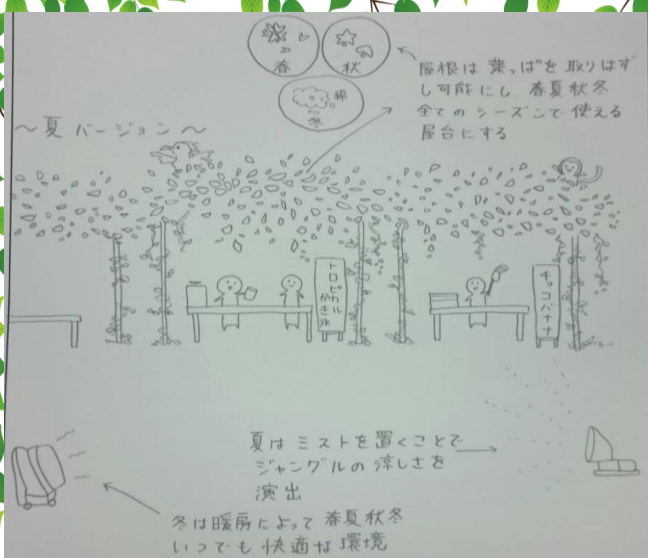 春
秋
綿
冬
屋根は葉っぱを取りはず
し可能にし、春夏秋冬
全てのシーズンで使える
屋台にする
～夏バージョン～
トロピカル
かき氷
チョコバナナ
夏はミストを置くことで
ジャングルの涼しさを
演出
冬は暖房によって春夏秋冬
いつでも快適な環境